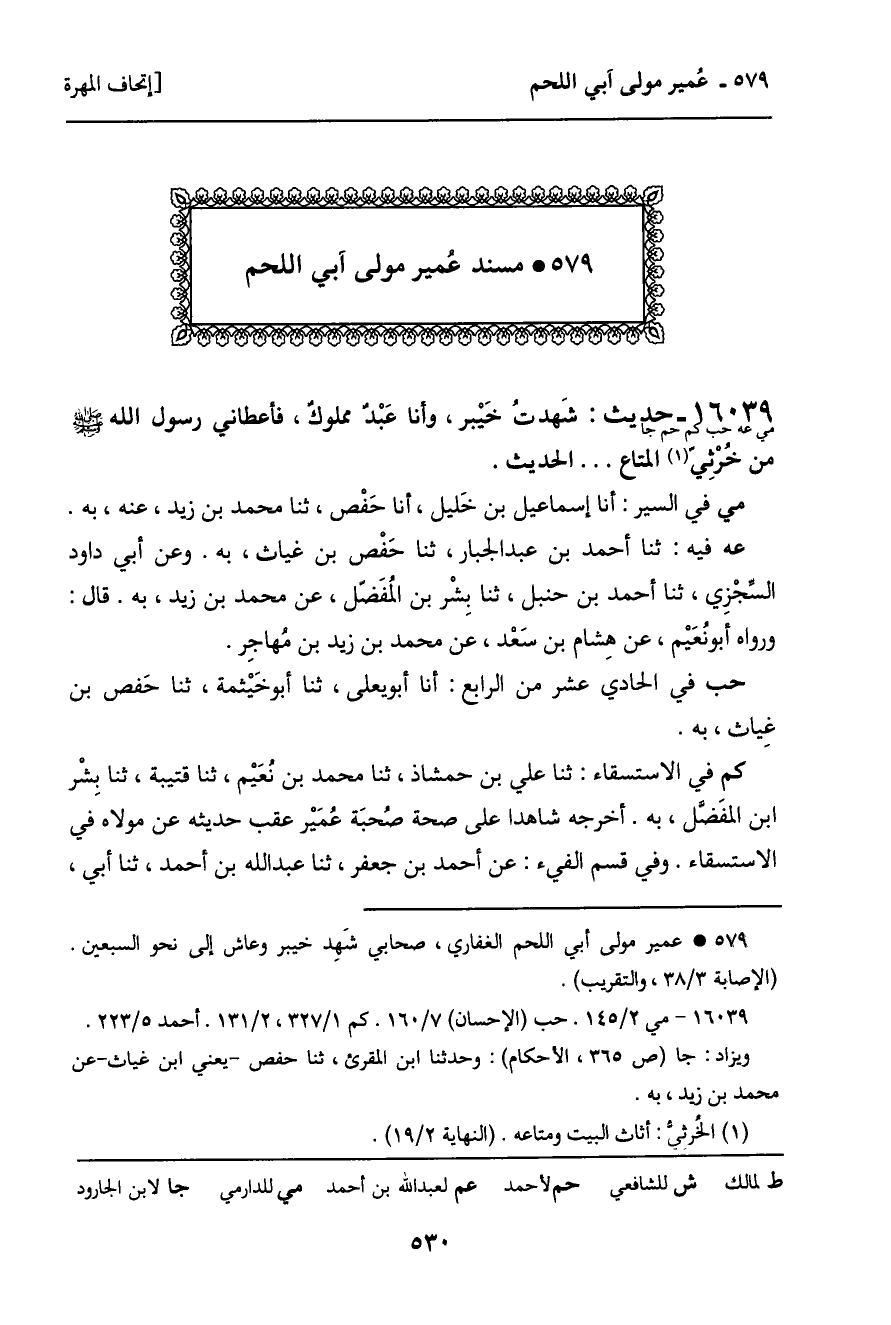 ٥٧٩ ـ عُمير مولى آبي اللحم [إتحاف المهرة
٥٧٩ ● مسند عُمير مولى آبي اللحم
١٦٠٣٩ـ حديث : شَهدتُ خَيْبر ، وأنا عَبْدٌ مملوكٌ ، فأعطاني رسول الله ﷺ
مي عه حب كم حم جا
من خُرْثِيّ(١) المتاع . . . الحديث .
مي في السير : أنا إسماعيل بن خَليل ، أنا حَفْص ، ثنا محمد بن زيد ، عنه ، به .
عه فيه : ثنا أحمد بن عبدالجبار ، ثنا حَفْص بن غياث ، به . وعن أبي داود
السِّجْزِي ، ثنا أحمد بن حنبل ، ثنا بِشْر بن المُفَضّل ، عن محمد بن زيد ، به . قال :
ورواه أبونُعَيْم ، عن هِشام بن سَعْد ، عن محمد بن زيد بن مُهاجِر .
حب في الحادي عشر من الرابع : أنا أبويعلى ، ثنا أبوخَيْثمة ، ثنا حَفص بن
غِياث ، به .
كم في الاستسقاء : ثنا علي بن حمشاذ ، ثنا محمد بن نُعَيْم ، ثنا قتيبة ، ثنا بِشْر
ابن المفَضَّل ، به . أخرجه شاهدا على صحة صُحبَة عُمَيْر عقب حديثه عن مولاه في
الاستسقاء . وفي قسم الفيء : عن أحمد بن جعفر ، ثنا عبدالله بن أحمد ، ثنا أبي ،
٥٧٩ ● عمير مولى آبي اللحم الغفاري ، صحابي شَهِد خيبر وعاش إلى نحو السبعين .
(الإصابة ٣٨/٣ ، والتقريب) .
١٦٠٣٩ – مي ١٤٥/٢ . حب (الإحسان) ١٦٠/٧ . كم ٣٢٧/١ ، ١٣١/٢ . أحمد ٢٢٣/٥ .
ويزاد : جا (ص ٣٦٥ ، الأحكام) : وحدثنا ابن المقرئ ، ثنا حفص –يعني ابن غياث–عن
محمد بن زيد ، به .
(١) الخُرثِيُّ : أثاث البيت ومتاعه . (النهاية ١٩/٢) .
ط لمالك ش للشافعي حم لأحمد عم لعبدالله بن أحمد مي للدارمي جا لابن الجارود
٥٣٠